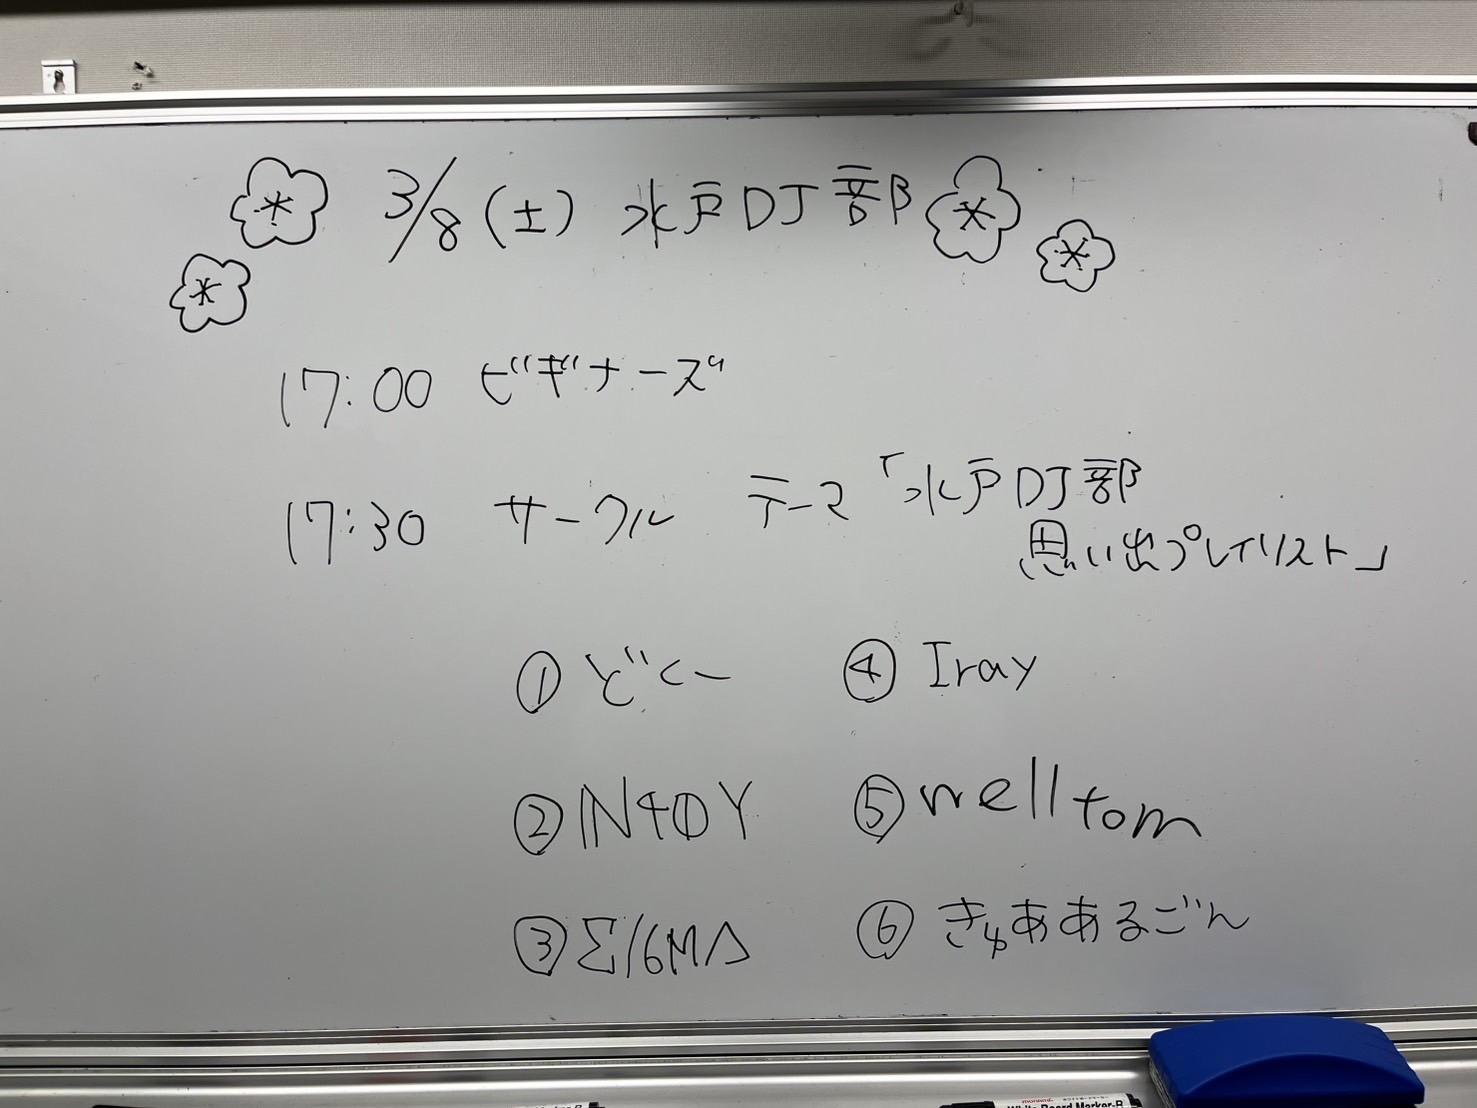 3/8(土) 水戸DJ部
17:00 ビギナーズ
17:30 サークル テーマ「水戸DJ部
思い出プレイリスト」
①どくー
②N4DY
③Σ/6MΔ
④Iray
⑤welltom
⑥きゅああるごん
White Board Marker-B